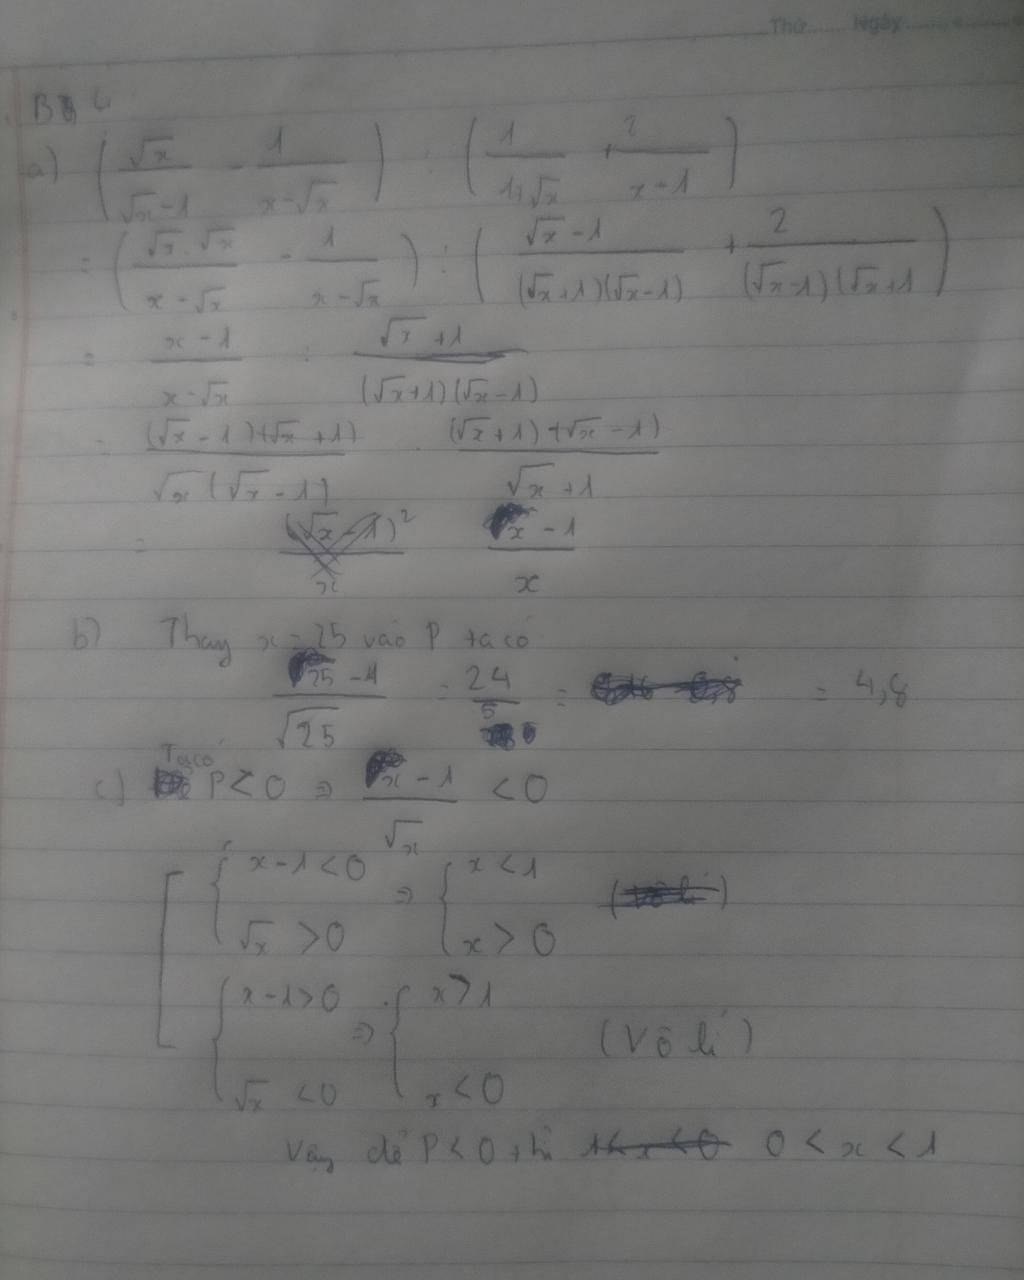 Thứ ........ Ngày ........
Bài 4
a) (√x/(√x-1) - 1/(x-√x)) : (1/(1+√x) + 2/(x-1))
= (√x.√x/(x-√x) - 1/(x-√x)) : ((√x-1)/((√x+1)(√x-1)) + 2/((√x-1)(√x+1)))
= (x-1)/(x-√x) : (√x+1)/((√x+1)(√x-1))
= (√x-1)(√x+1)/(√x(√x-1)) . (√x+1)(√x-1)/(√x+1)
= (√x-1)²/x (x-1)/x
b) Thay x=25 vào P ta có
(25-1)/√25 = 24/5 = = 4,8
c) Ta có P<0 => (x-1)/√x <0
[ { x-1<0 ; √x >0 => { x<1 ; x>0
{ x-1>0 ; √x <0 => { x>1 ; x<0 (Vô lí)
Vậy để P<0 thì 1<x<0 0<x<1